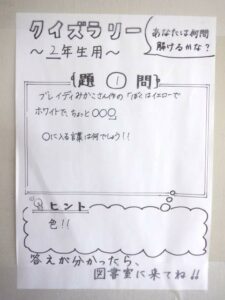 クイズラリー
～2年生用～
あなたは何問
解けるかな？
第①問
ブレイディみかこさん作の「ぼくはイエローで
ホワイトで、ちょっと○○○
○に入る言葉は何でしょう！！
ヒント
色！！
答えが分かったら、
図書室に来てね!!